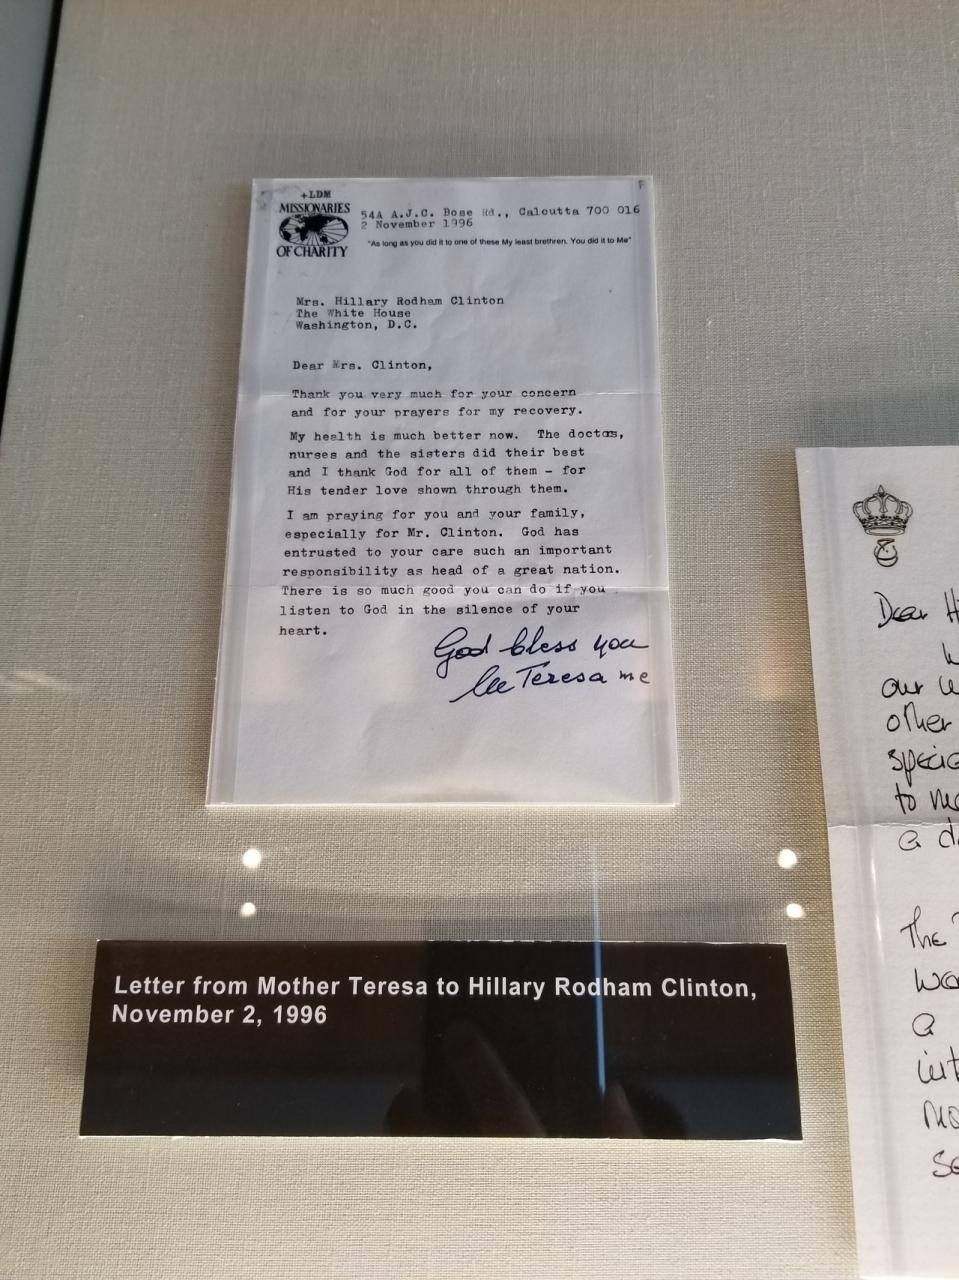 +LDM
MISSIONARIES
OF CHARITY
54A A.J.C. Bose Rd., Calcutta 700 016
2 November 1996
"As long as you did it to one of these My least brethren. You did it to Me"
Mrs. Hillary Rodham Clinton
The White House
Washington, D.C.
Dear Mrs. Clinton,
Thank you very much for your concern
and for your prayers for my recovery.
My health is much better now. The doctos,
nurses and the sisters did their best
and I thank God for all of them - for
His tender love shown through them.
I am praying for you and your family,
especially for Mr. Clinton. God has
entrusted to your care such an important
responsibility as head of a great nation.
There is so much good you can do if you
listen to God in the silence of your
heart.
God bless you
Teresa mc
Letter from Mother Teresa to Hillary Rodham Clinton,
November 2, 1996
Dear
our
other
to
a
The
a